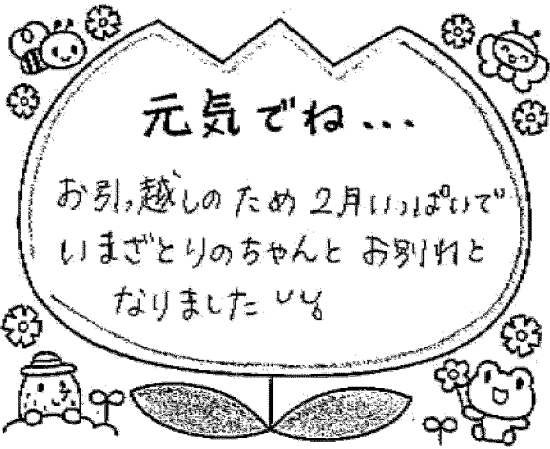 元気でね...
お引っ越しのため2月いっぱいで
いまざとりのちゃんとお別れと
なりました